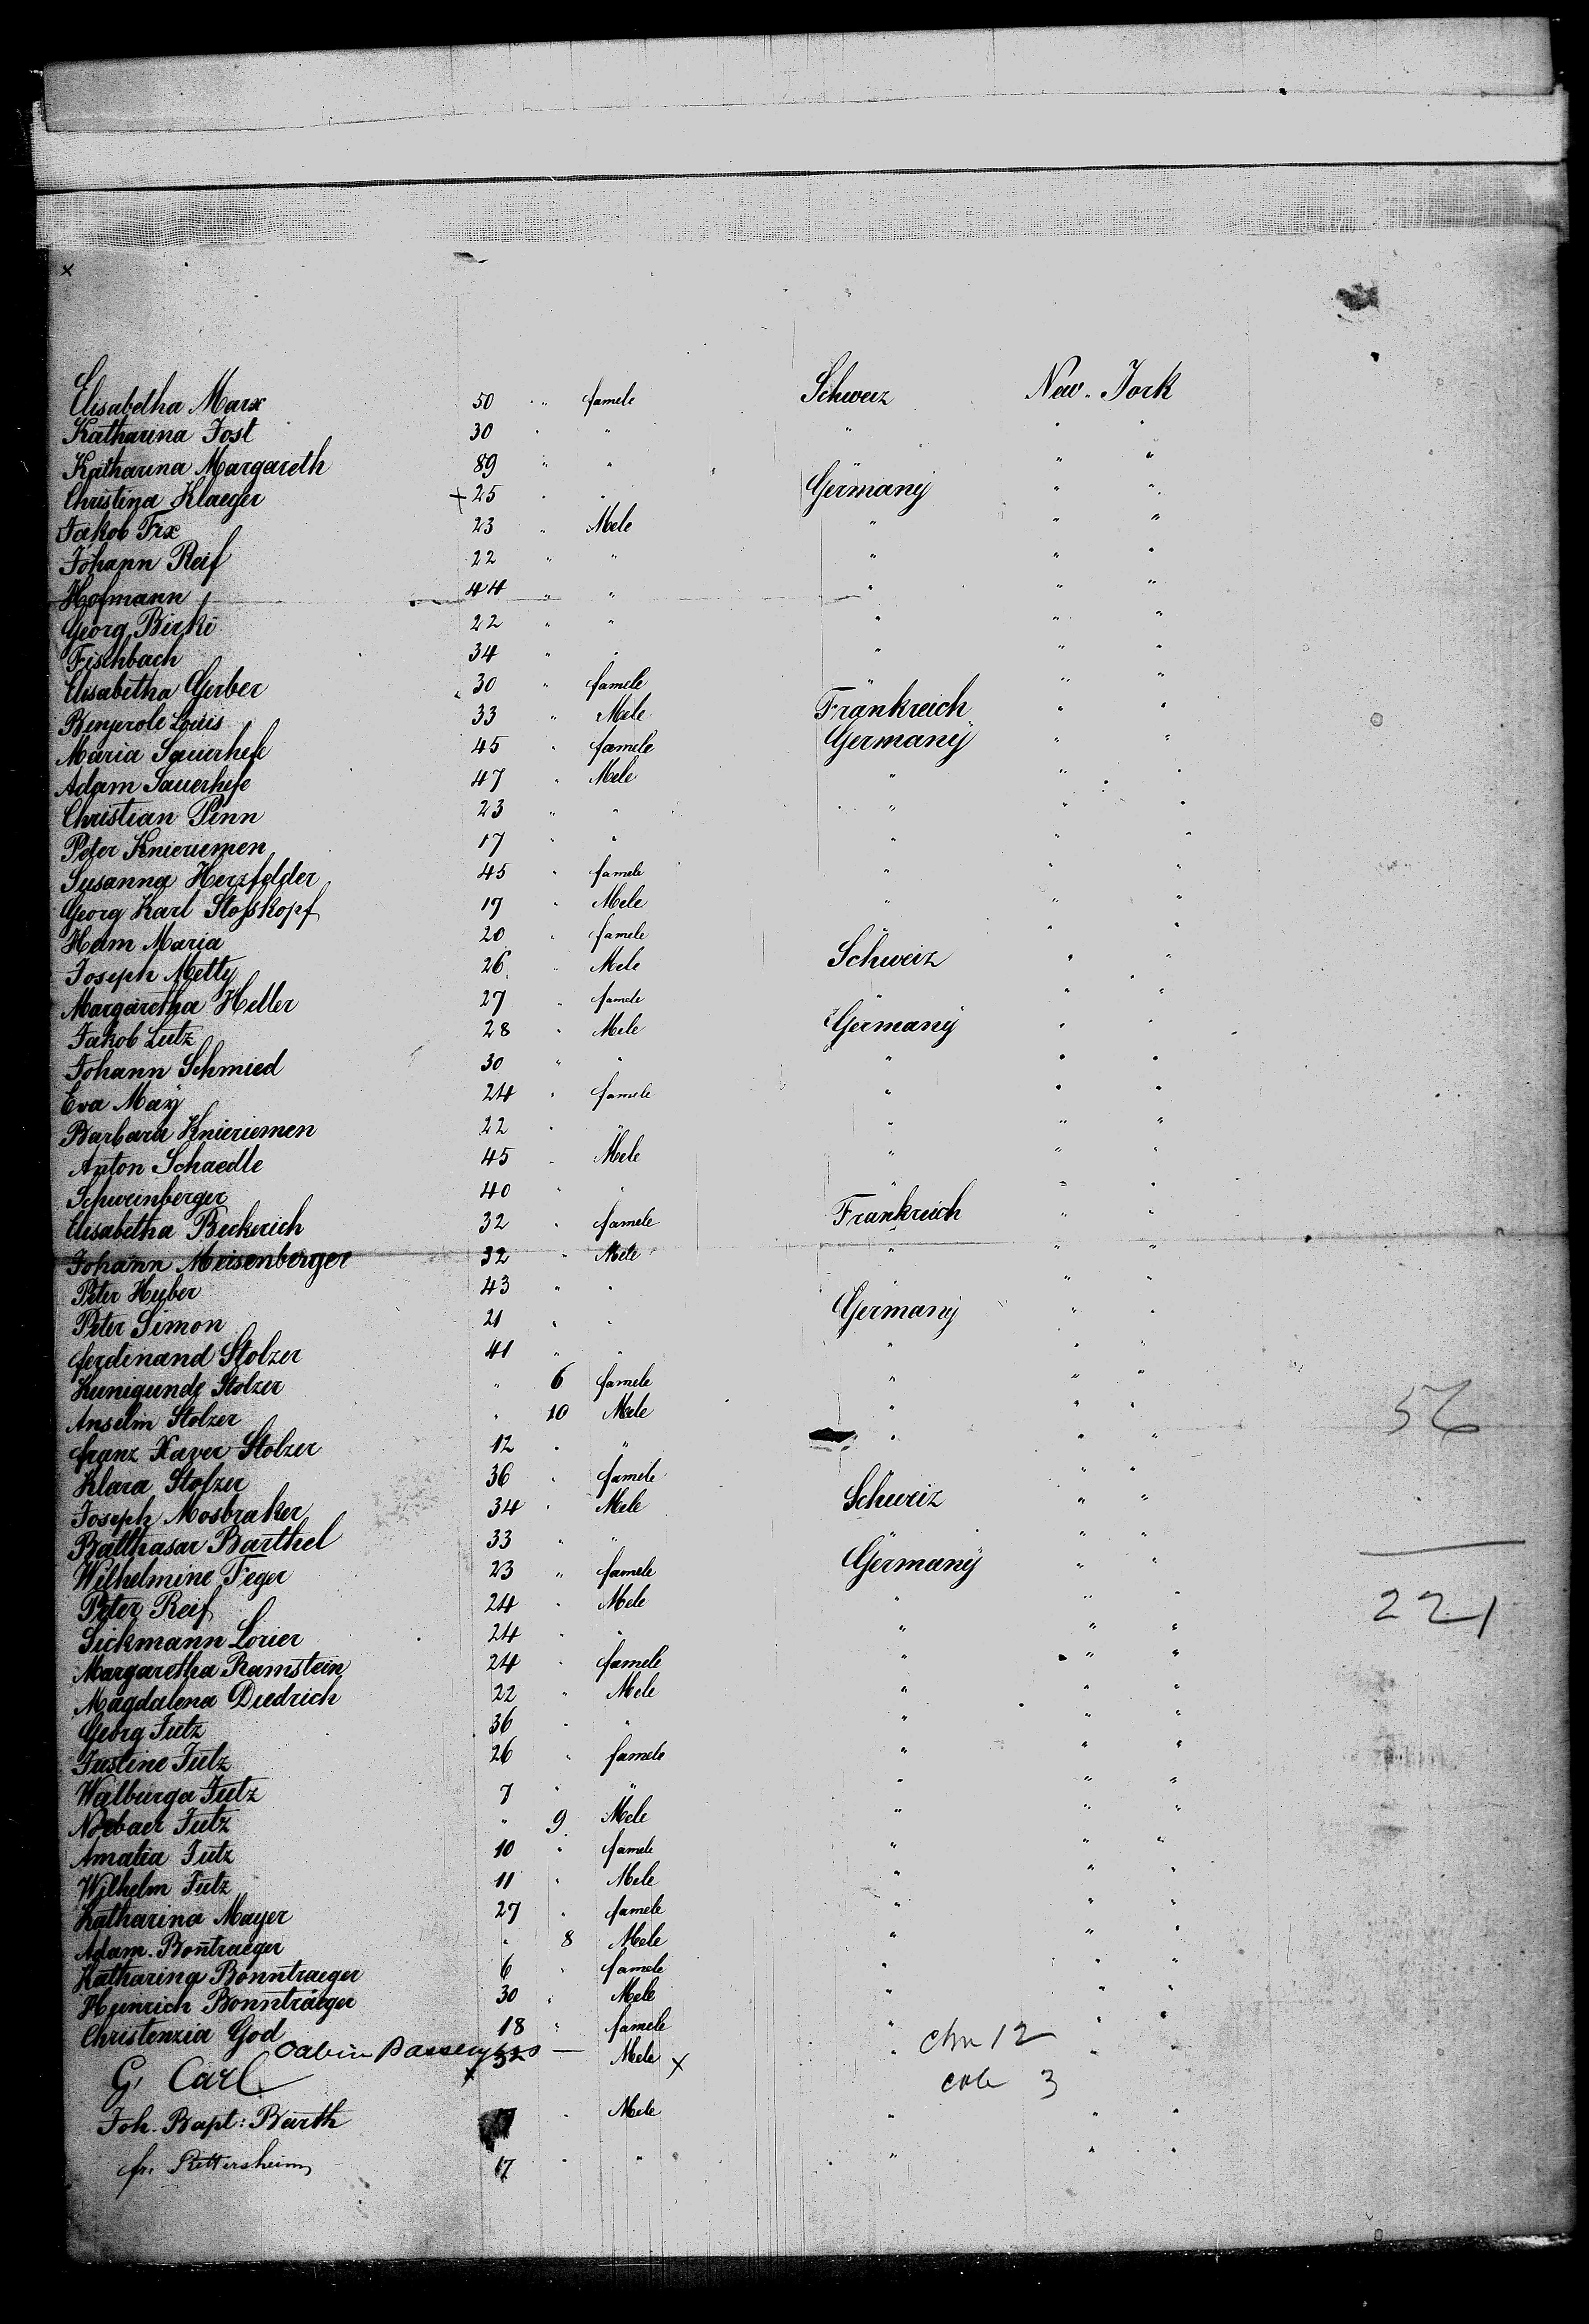 Elisabetha Marx 50 " " famele Schweiz New-York
Katharina Jost 30 " " " " "
Katharina Margareth 89 " " " "
Christina Klaeger +25 " " Germany " "
Jakob Frx 23 " Mele " " "
Johann Reif 22 " " " " "
Hofmann 44 " " " " "
Georg Birki 22 " " " " "
Fischbach 34 " " " " "
Elisabetha Gerber 30 " famele " " "
Louis 33 " Mele Frankreich " "
Maria Sauerhefe 45 " famele Germany " "
Adam Sauerhefe 47 " Mele " " "
Christian Penn 23 " " " " "
Peter Knieriemen 17 " " " " "
Susanna Herzfelder 45 " famele " " "
Georg Karl Stofskopf 19 " Mele " " "
Heim Maria 20 " famele " " "
Joseph Metty 26 " Mele Schweiz " "
Margaretha Heller 27 " famele " " "
Jakob Lutz 28 " Mele Germany " "
Johann Schmied 30 " " " " "
Eva May 24 " famele " " "
Barbara Knieriemen 22 " " " " "
Anton Schaedle 45 " Mele " " "
Schweinberger 40 " " " " "
Elisabetha Beckerich 32 " famele Frankreich " "
Johann Meisenberger 32 " Mele " " "
Peter Huber 43 " " " "
Peter Simon 21 " " Germany " "
ferdinand Stolzer 41 " " " " "
Kunigunde Stolzer " 6 famele " " "
Anselm Stolzer " 10 Mele " " " 56
franz Xaver Stolzer 12 " " " " "
Klara Stolzer 36 " famele " "
Joseph Mosbraker 34 " Mele Schweiz " "
Balthasar Barthel 33 " " " "
Wilhelmine Feger 23 " famele Germany " "
Peter Reif 24 " Mele " " " 221
Sickmann Lorier 24 " " " " "
Margaretha Ramstein 24 " famele " " "
Magdalena Diedrich 22 " Mele " " "
Georg Jutz 36 " " " " "
Justine Jutz 26 " famele " " "
Walburga Jutz 7 " " " " "
Jutz " 9 Mele " " "
Amalia Jutz 10 " famele " " "
Wilhelm Jutz 11 " Mele " " "
Katharina Mayer 27 " famele " " "
Adam Bontraeger " 8 Mele " " "
Katharina Bonntraeger 6 " famele " " "
Heinrich Bonntraeger 30 " Mele " " "
Christenzia God 18 " famele " " "
Cabin Passengers
G. Carl x 32 — Mele x " " "
12
3
Joh. Bapt: Barth 17 " Mele " " "
fr. Rettersheim 17 " " " " "